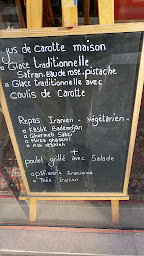 jus de carotte maison
Glace traditionnelle
Safran. Eau de rose. pistache
Glace traditionnelle avec
coulis de Carotte
Repas Iranien - végétarien -
Kashk Bademdjan
Ghormeh Sabzi
Mirza ghasemi
Ash
+
poulet grillé avec Salade
pâtisserie Iranienne
Thés Iranien